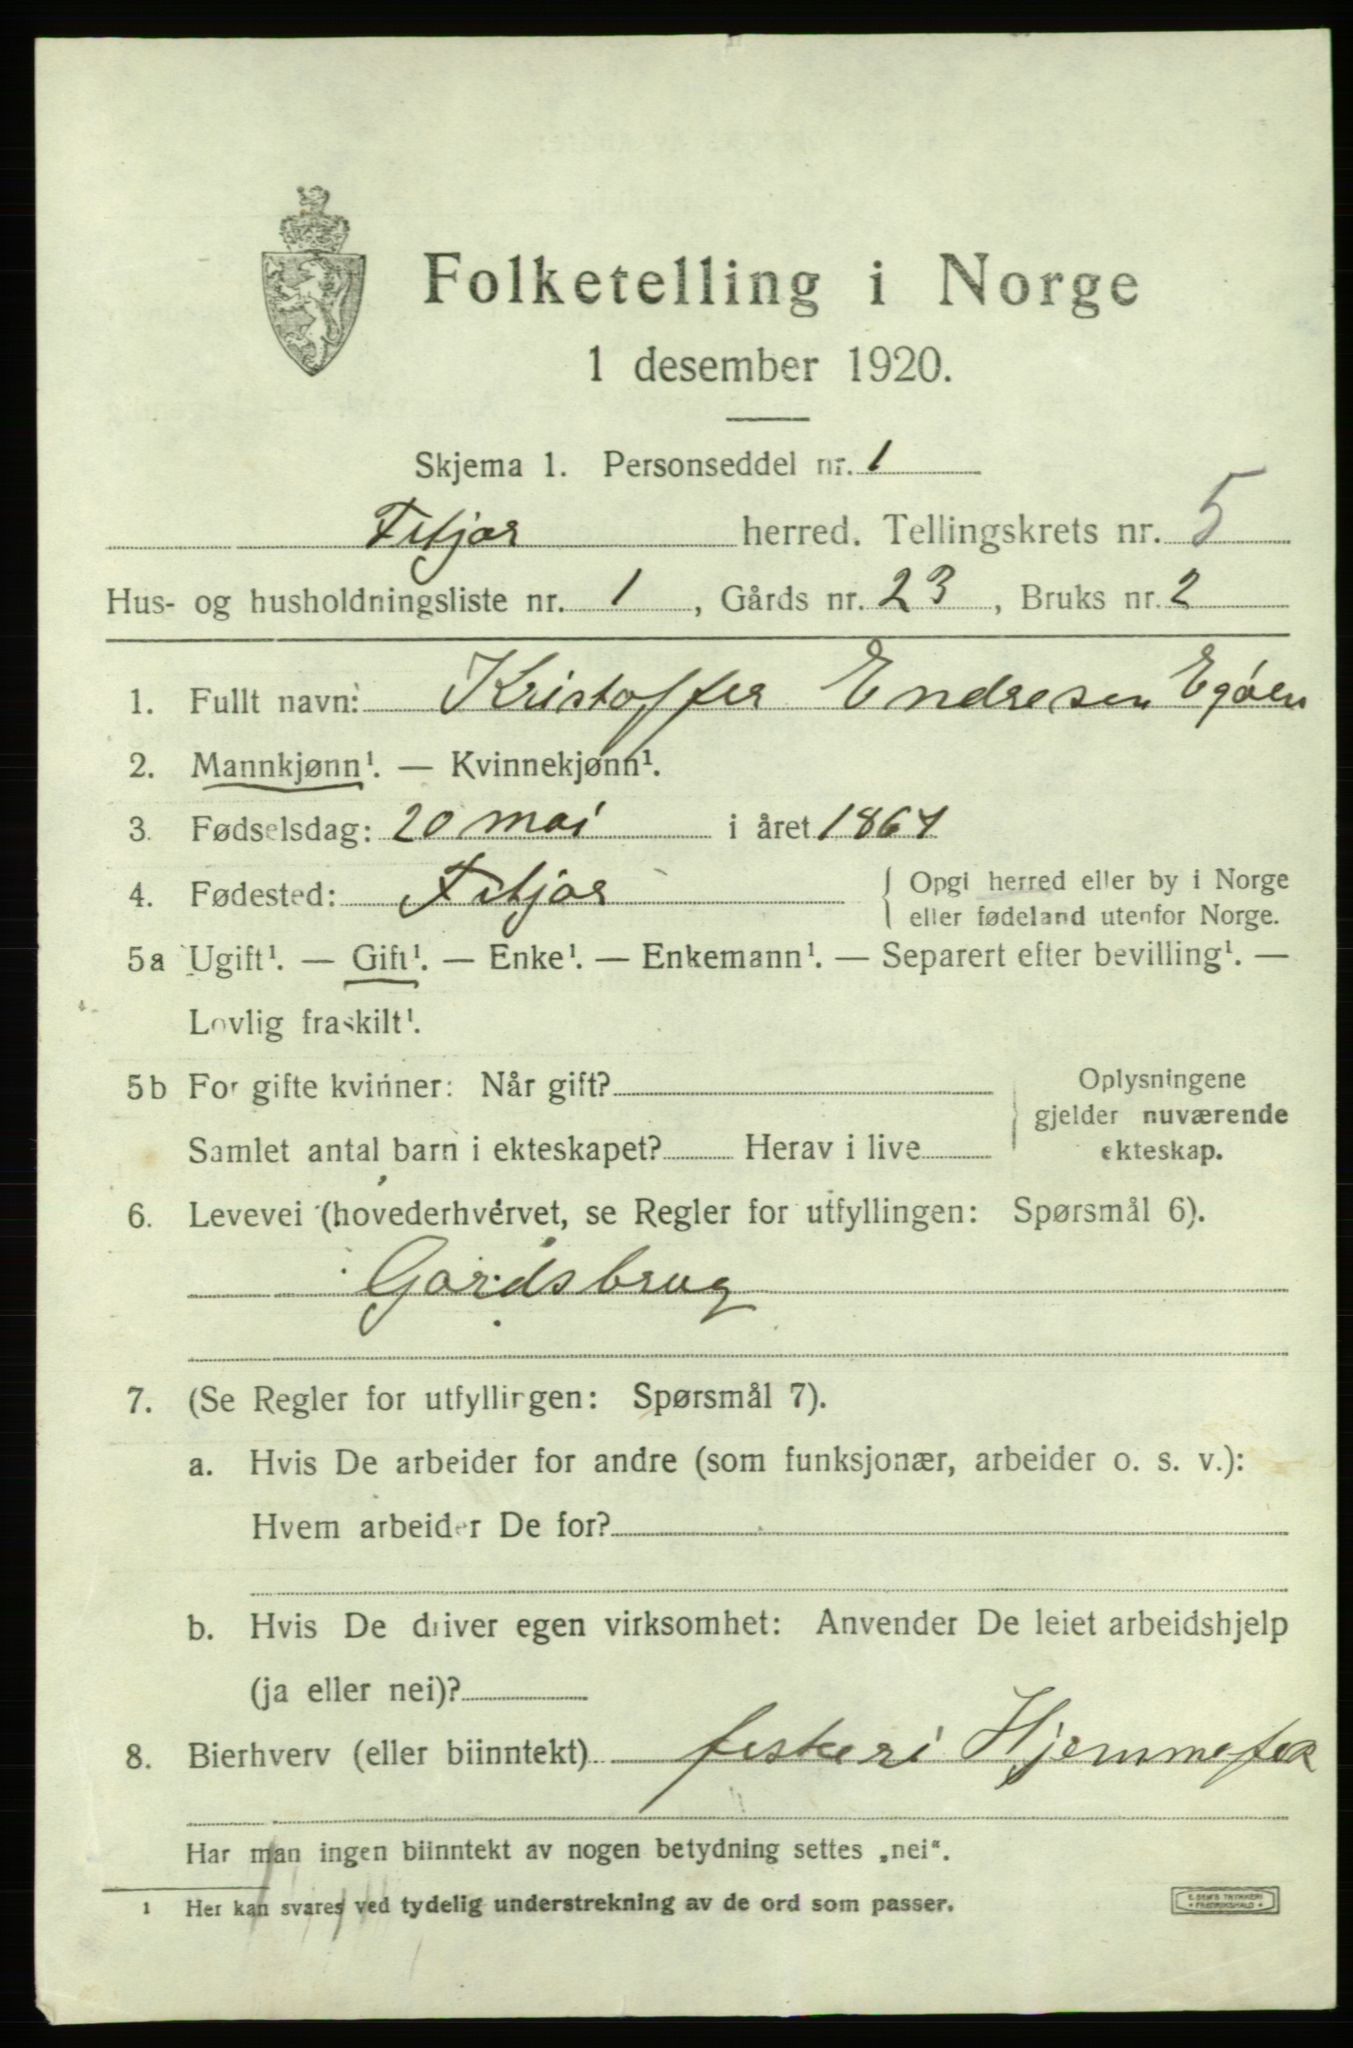 Folketelling i Norge
1 desember 1920.
Skjema 1. Personseddel nr. 1
Fitjar herred. Tellingskrets nr. 5
Hus- og husholdningsliste nr. 1, Gårds nr. 23, Bruks nr. 2
1. Fullt navn: Kristoffer Endresen Egøen
2. Mannkjønn¹. — Kvinnekjønn¹.
3. Fødselsdag: 20 mai i året 1864
4. Fødested: Fitjar { Opgi herred eller by i Norge
eller fødeland utenfor Norge.
5a Ugift¹. — Gift¹. — Enke¹. — Enkemann¹. — Separert efter bevilling¹. —
Lovlig fraskilt¹.
5b For gifte kvinner: Når gift? Oplysningene
gjelder nuværende
Samlet antal barn i ekteskapet? Herav i live ekteskap.
6. Levevei (hovederhvervet, se Regler for utfyllingen: Spørsmål 6).
Gardsbrug
7. (Se Regler for utfyllingen: Spørsmål 7).
a. Hvis De arbeider for andre (som funksjonær, arbeider o. s. v.):
Hvem arbeider De for?
b. Hvis De driver egen virksomhet: Anvender De leiet arbeidshjelp
(ja eller nei)?
8. Bierhverv (eller biinntekt) fiskeri Hjemmefisk
Har man ingen biinntekt av nogen betydning settes „nei“.
1 Her kan svares ved tydelig understrekning av de ord som passer.